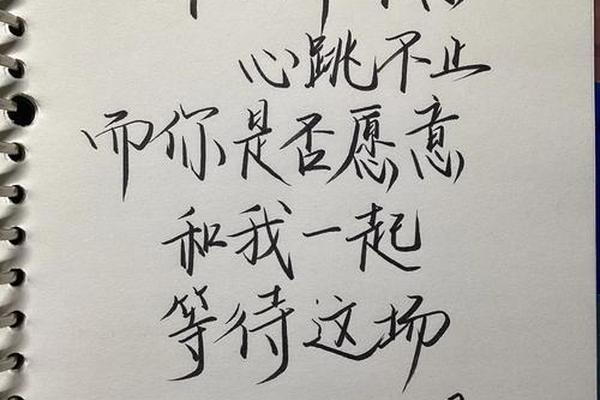 心跳不止
而你是否愿意
和我一起
等待这场